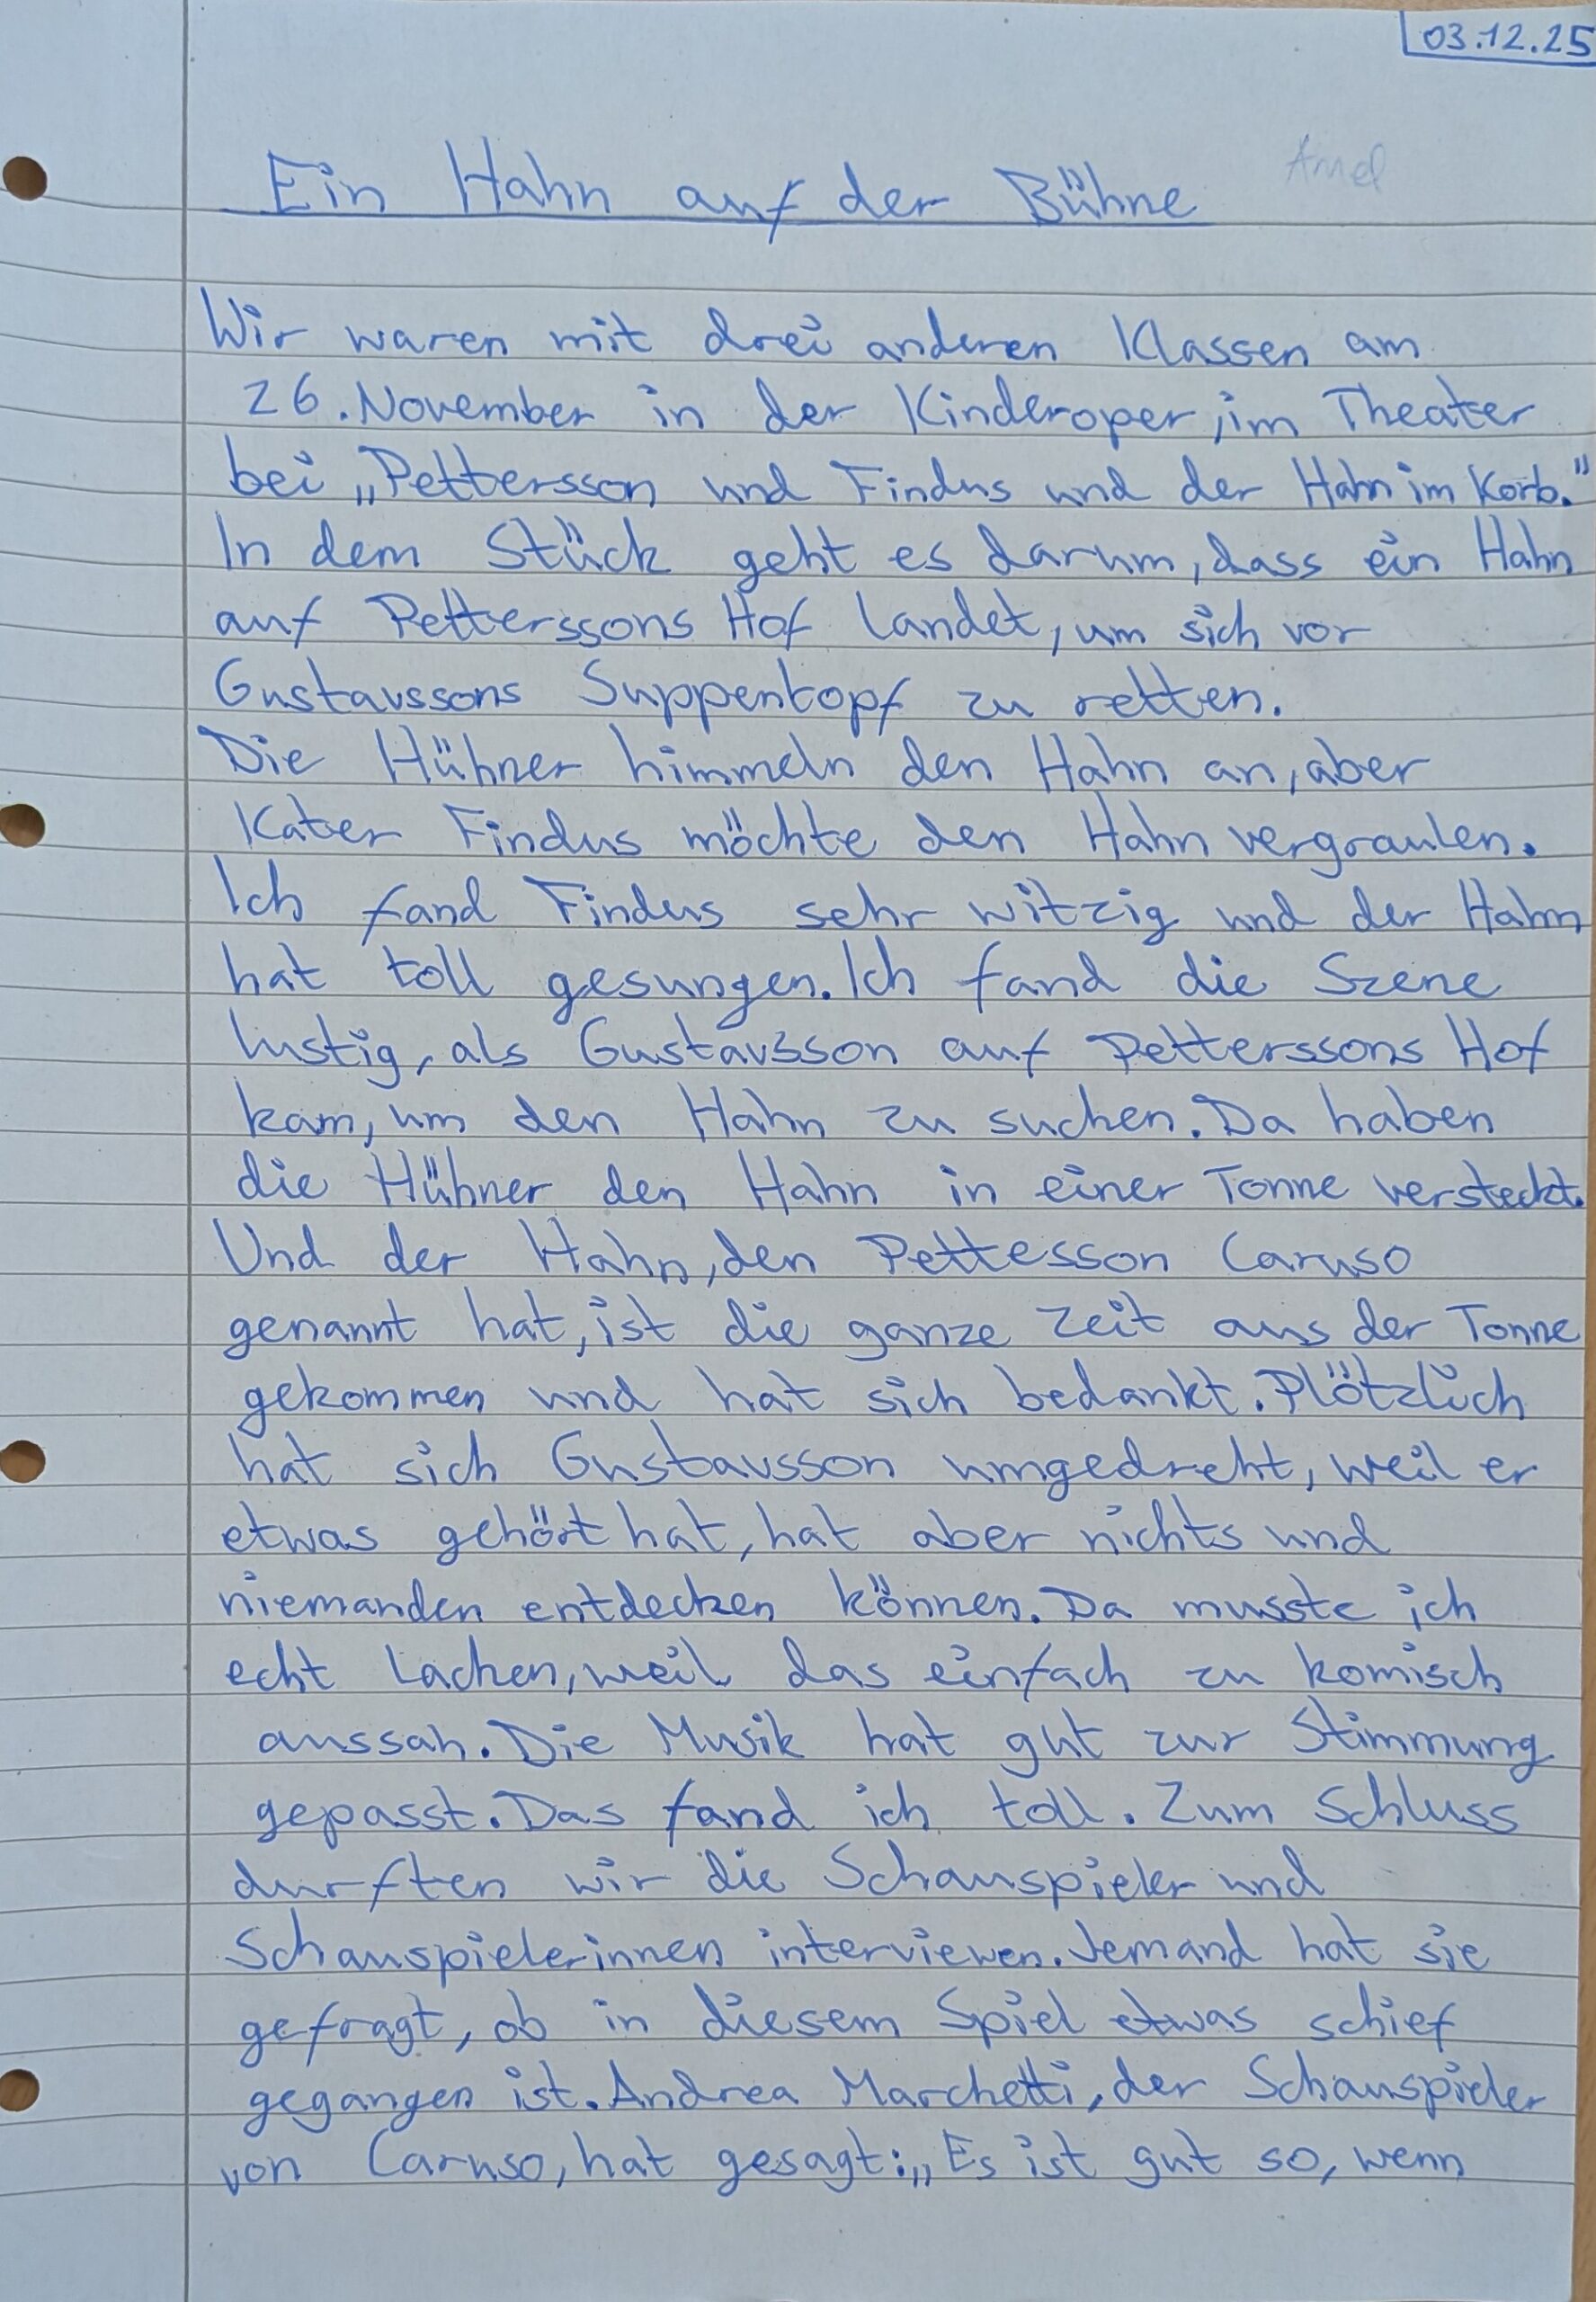 03.12.25
Ein Hahn auf der Bühne
Amel
Wir waren mit drei anderen Klassen am
26. November in der Kinderoper, im Theater
bei „Pettersson und Findus und der Hahn im Korb."
In dem Stück geht es darum, dass ein Hahn
auf Petterssons Hof landet, um sich vor
Gustavssons Suppentopf zu retten.
Die Hühner himmeln den Hahn an, aber
Kater Findus möchte den Hahn vergraulen.
Ich fand Findus sehr witzig und der Hahn
hat toll gesungen. Ich fand die Szene
lustig, als Gustavsson auf Petterssons Hof
kam, um den Hahn zu suchen. Da haben
die Hühner den Hahn in einer Tonne versteckt.
Und der Hahn, den Pettesson Caruso
genannt hat, ist die ganze Zeit aus der Tonne
gekommen und hat sich bedankt. Plötzlich
hat sich Gustavsson umgedreht, weil er
etwas gehört hat, hat aber nichts und
niemanden entdecken können. Da musste ich
echt lachen, weil das einfach zu komisch
aussah. Die Musik hat gut zur Stimmung
gepasst. Das fand ich toll. Zum Schluss
durften wir die Schauspieler und
Schauspielerinnen interviewen. Jemand hat sie
gefragt, ob in diesem Spiel etwas schief
gegangen ist. Andrea Marchetti, der Schauspieler
von Caruso, hat gesagt: „Es ist gut so, wenn